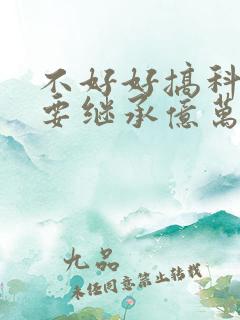 不好好搞科
要继承億萬
九品
未经同意禁止转载